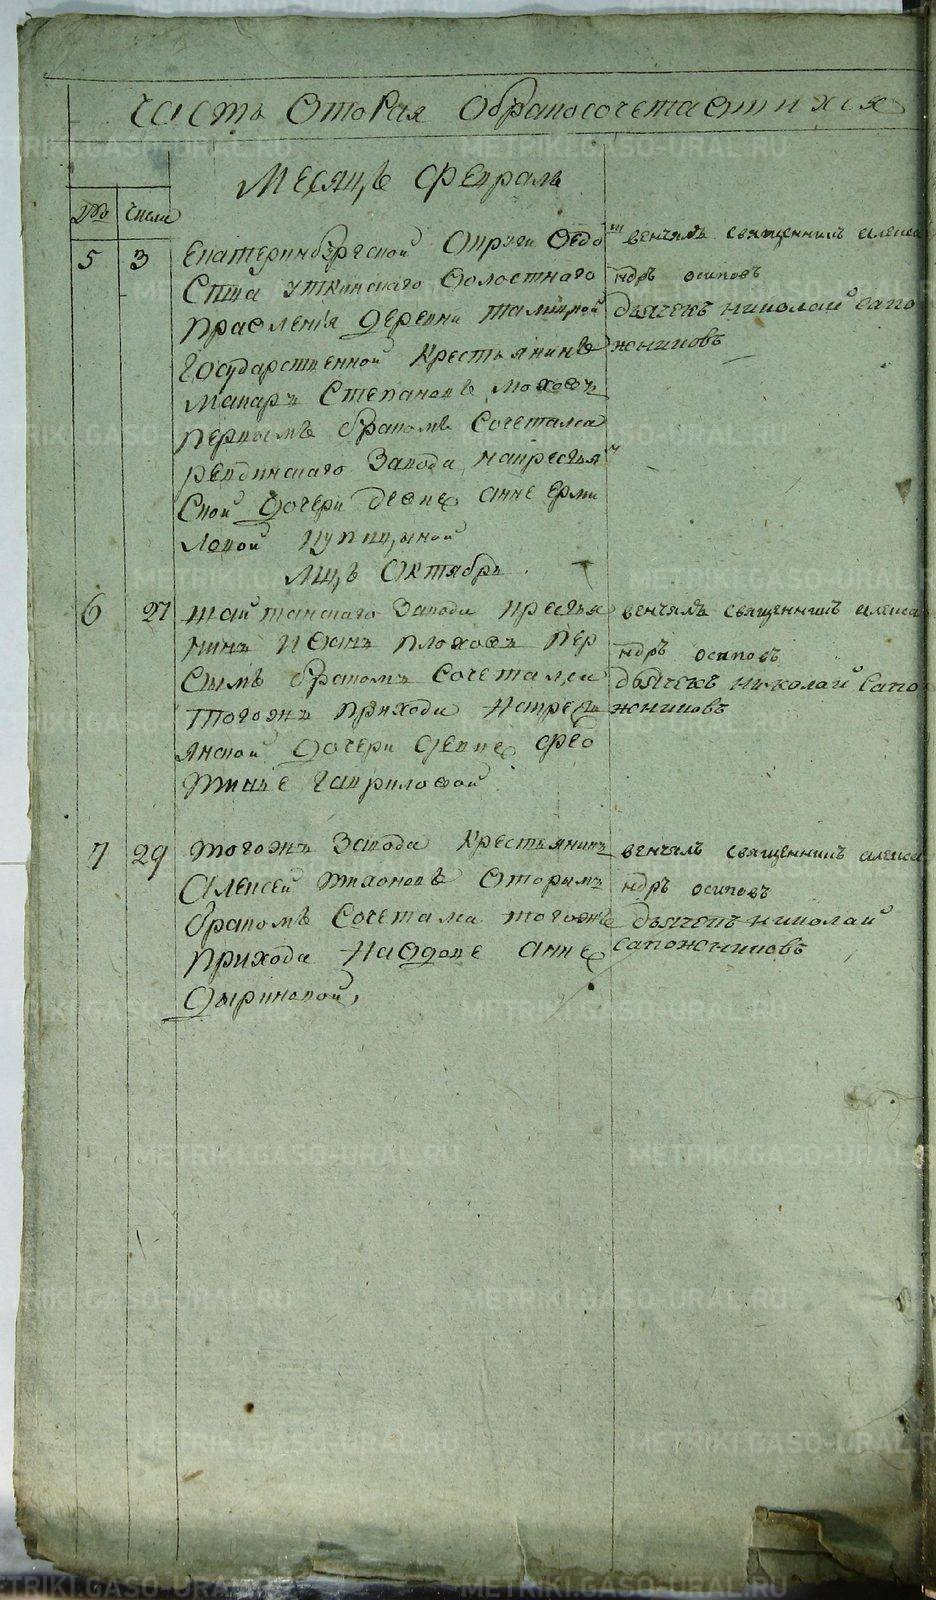 Часть вторая обракосочетавшихся
Месяцъ февраль
№ число
5 3 Екатеринбургской округи ведом
Ства уткинскаго волостнаго
правления деревни талицкой
государственной крестьянинъ
Макаръ Степановъ моховъ
первымъ бракомъ Сочетался
ревдинскаго завода накрестья
Ской дочери девке анне ерми
ловой
венчалъ священникъ алекса
ндръ осиповъ
дьячекъ николай сапо
жниковъ
мцъ Октябрь
6 27 шайтанскаго завода крестья
нинъ плоховъ пер
вымъ бракомъ Сочетался
тогожъ прихода накресть
янской дочери девке фео
тинье гавриловой
венчалъ священникъ алекса
ндръ осиповъ
дьячекъ николай сапо
жниковъ
7 29 тогожъ завода крестьянинъ
Алексей тихоновъ вторымъ
бракомъ Сочетался тогожъ
прихода навдове анне
дыриновой
венчалъ священникъ алекса
ндръ осиповъ
дьячекъ николай
сапожниковъ
METRIKI.GASO-URAL.RU